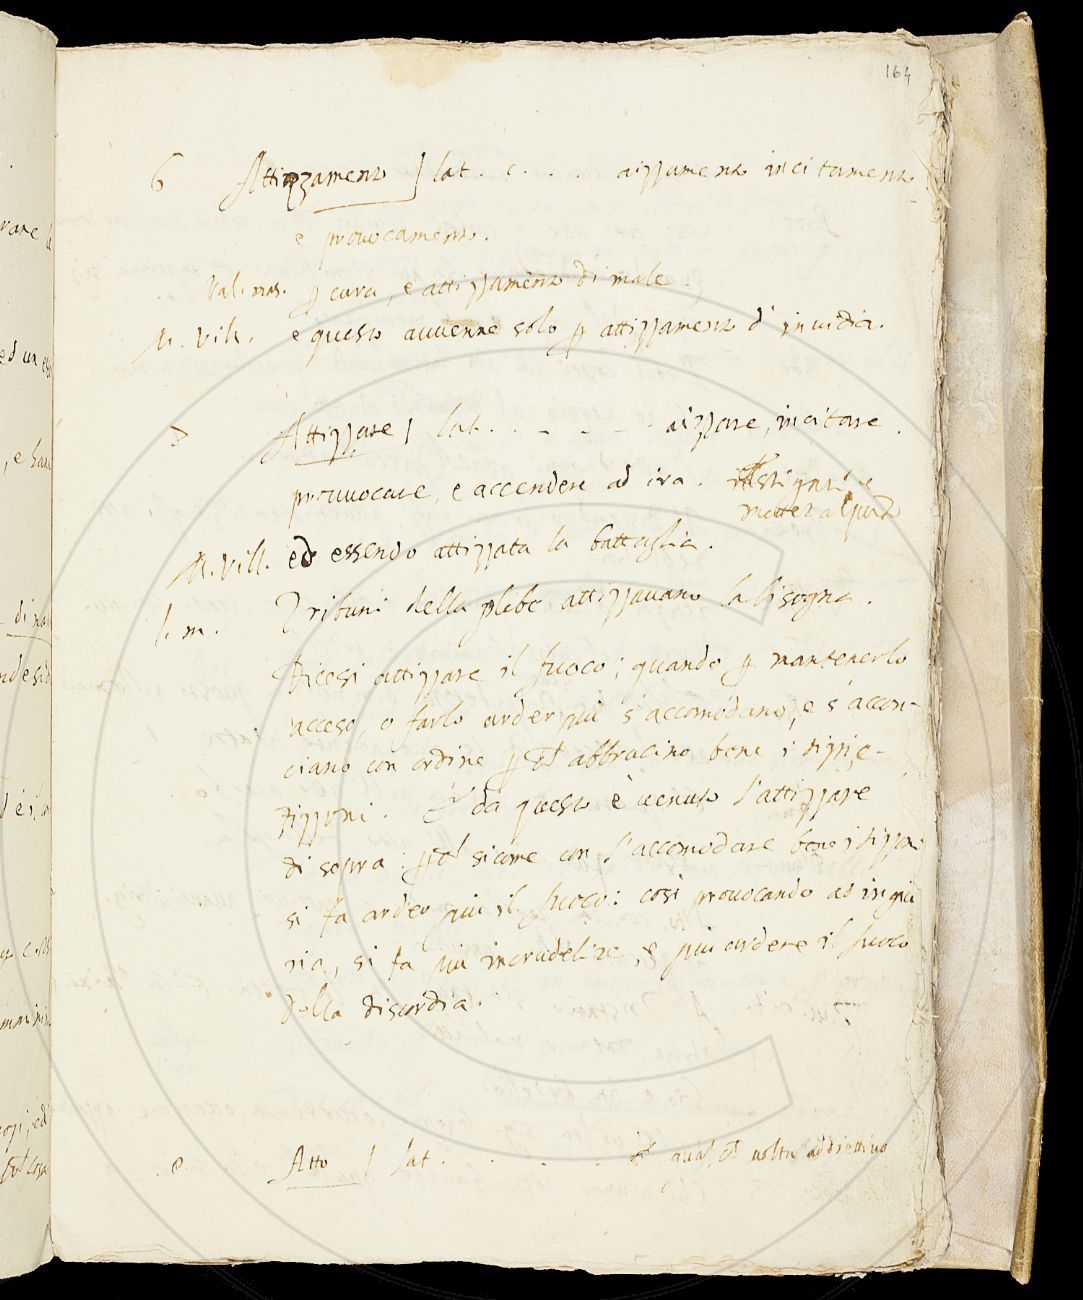 164
6 Attizzamento ] lat. . . . . aizzamento incitamento
e provocamento.
Val. mas. p cura, e attizzamento di male.
M. Vill. e questo auuenne solo p attizzamento d'inuidia.
Attizzare ] lat. . . . . aizzare, incitare.
prouuocare, e accendere ad ira. instigare e
metter al punto
M. Vill. ed essendo attizzata la battaglia.
l. m. Tribuni della plebe attizzauano la bisogna.
Dicesi attizzare il fuoco; quando p mantenerlo
acceso, o farlo arder più s'accomodano, e s'accon-
ciano con ordine abbracino bene i tizzi, e
tizzoni. da questo è uenuto l'attizzare
di sopra: sicome con l'accomodare bene i tizzoni
si fa arder più il fuoco: così prouocando ad ingiu
ria, si fa più incrudelire, e più ardere il fuoco
della discordia.
Atto ] lat. . . . . qual uolta addiettiuo